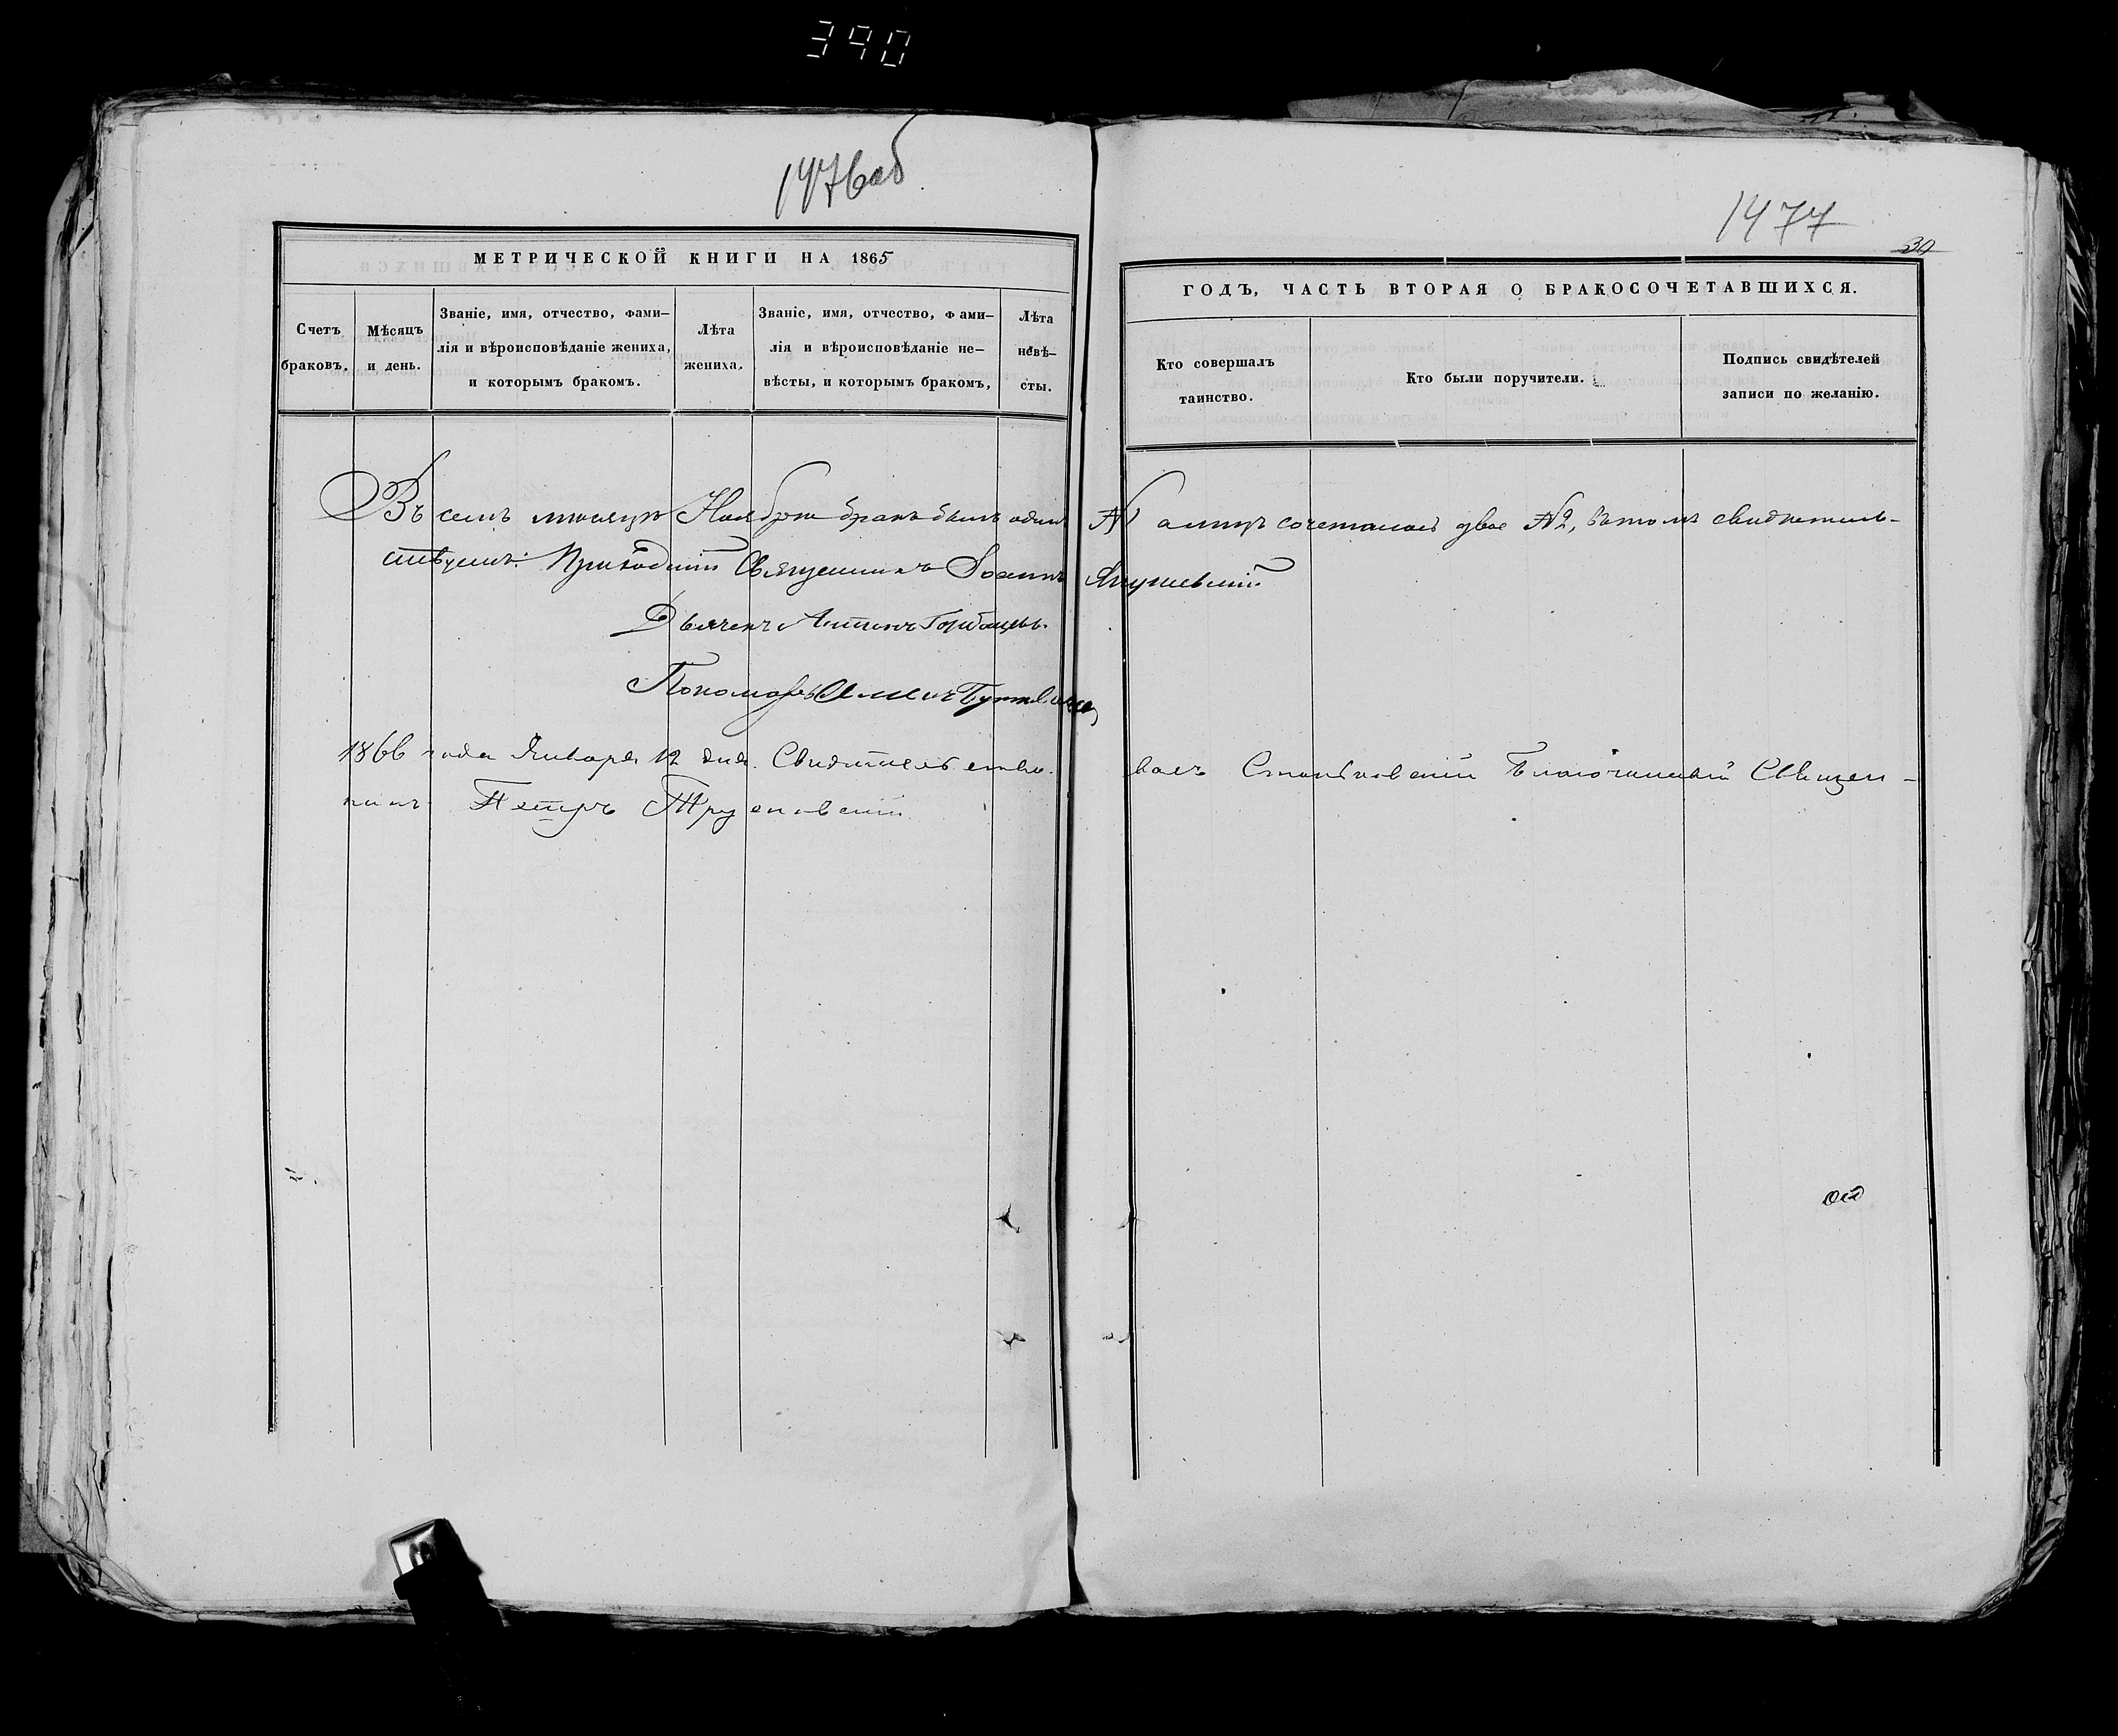 390
1476об
1477
30
МЕТРИЧЕСКОЙ КНИГИ НА 1865
ГОДЪ, ЧАСТЬ ВТОРАЯ О БРАКОСОЧЕТАВШИХСЯ.
Счетъ браковъ.
Мѣсяцъ и день.
Званіе, имя, отчество, фами-
лія и вѣроисповѣданіе жениха,
и которымъ бракомъ.
Лѣта жениха.
Званіе, имя, отчество, фами-
лія и вѣроисповѣданіе не-
вѣсты, и которымъ бракомъ,
Лѣта невѣ-
сты.
Кто совершалъ
таинство.
Кто были поручители.
Подпись свидѣтелей
записи по желанію.
Въ семъ мѣсяцѣ Ноябрѣ бракъ былъ одинъ №1 а лицъ сочеталось двое №2, въ томъ свидѣтель-
ствуемъ: Приходскій Священникъ Іоаннъ
Дьячекъ Антонъ
Пономарь
1866 года Января 12 дня. Свидѣтельство-
валъ Благочинный Священ-
никъ Петръ